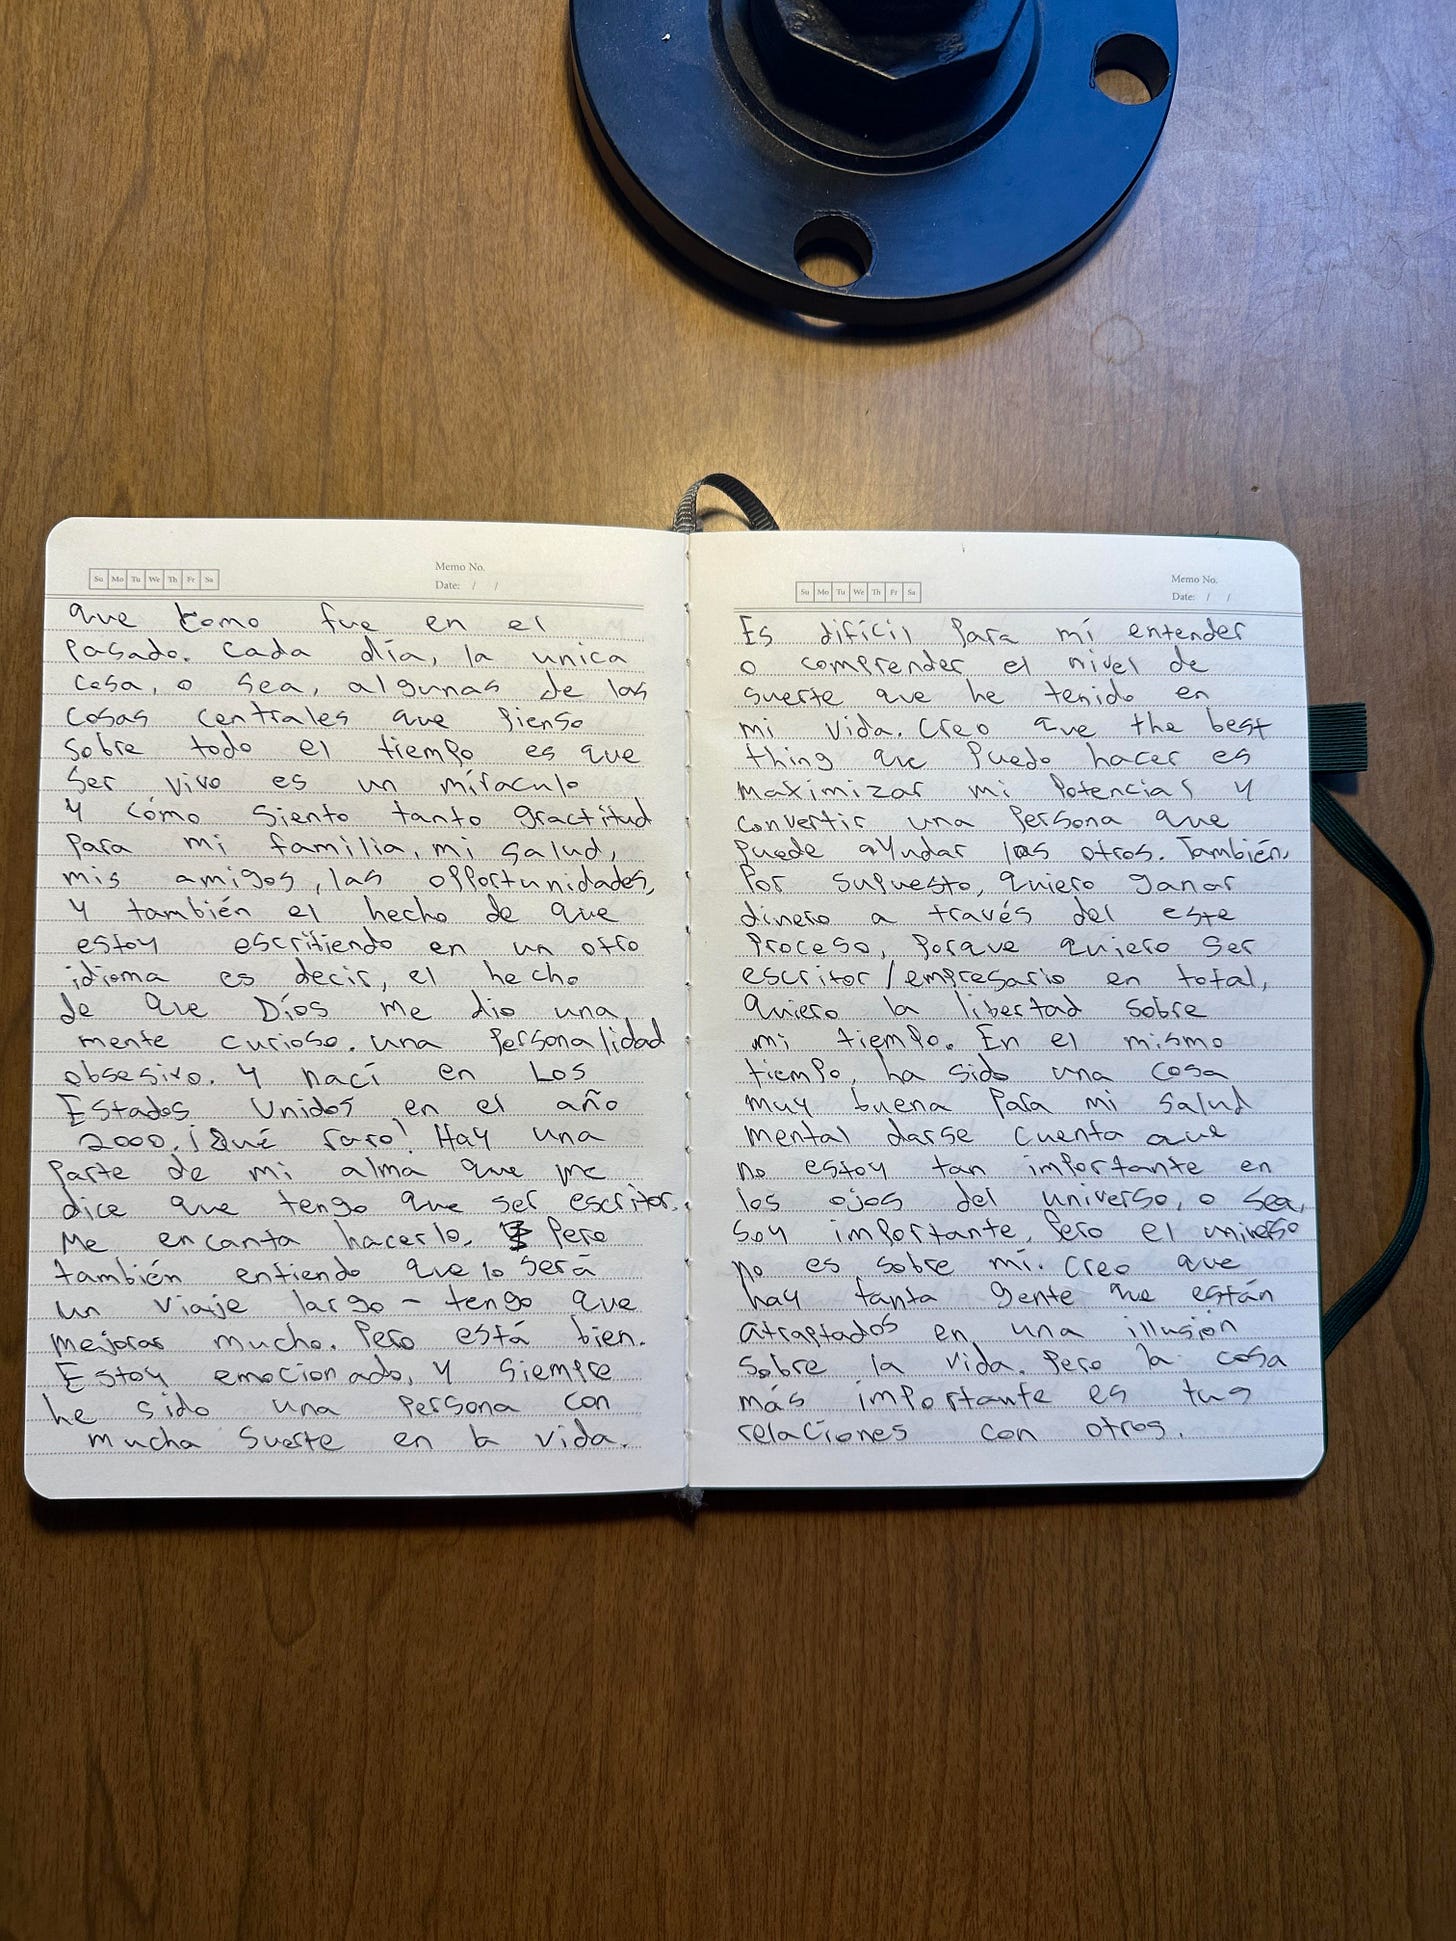 Su Mo Tu We Th Fr Sa
Memo No.
Date: / /
que como fue en el
pasado. Cada día, la unica
cosa, o sea, algunas de las
cosas centrales que pienso
sobre todo el tiempo es que
ser vivo es un míraculo
y cómo siento tanto gractitud
para mi familia, mi salud,
mis amigos, las opportunidades,
y también el hecho de que
estoy escribiendo en un otro
idioma es decir, el hecho
de que Díos me dio una
mente curioso. una personalidad
obsesivo. y nací en Los
Estados Unidos en el año
2000. ¡Qué raro! Hay una
parte de mi alma que me
dice que tengo que ser escritor.
Me encanta hacerlo. Pero
también entiendo que lo será
un viaje largo - tengo que
mejorar mucho. Pero está bien.
Estoy emocionado, y siempre
he sido una persona con
mucha suerte en la vida.
Su Mo Tu We Th Fr Sa
Memo No.
Date: / /
Es difícil para mí entender
o comprender el nivel de
suerte que he tenido en
mi vida. Creo que the best
thing que puedo hacer es
maximizar mi potencial y
convertir una persona que
puede ayudar los otros. También,
por supuesto, quiero ganar
dinero a través del este
proceso, porque quiero ser
escritor/empresario en total,
quiero la libertad sobre
mi tiempo. En el mismo
tiempo, ha sido una cosa
muy buena para mi salud
mental darse cuenta que
no estoy tan importante en
los ojos del universo, o sea,
soy importante, pero el universo
no es sobre mí. Creo que
hay tanta gente que están
atraptados en una illusión
sobre la vida. Pero la cosa
más importante es tus
relaciones con otros.